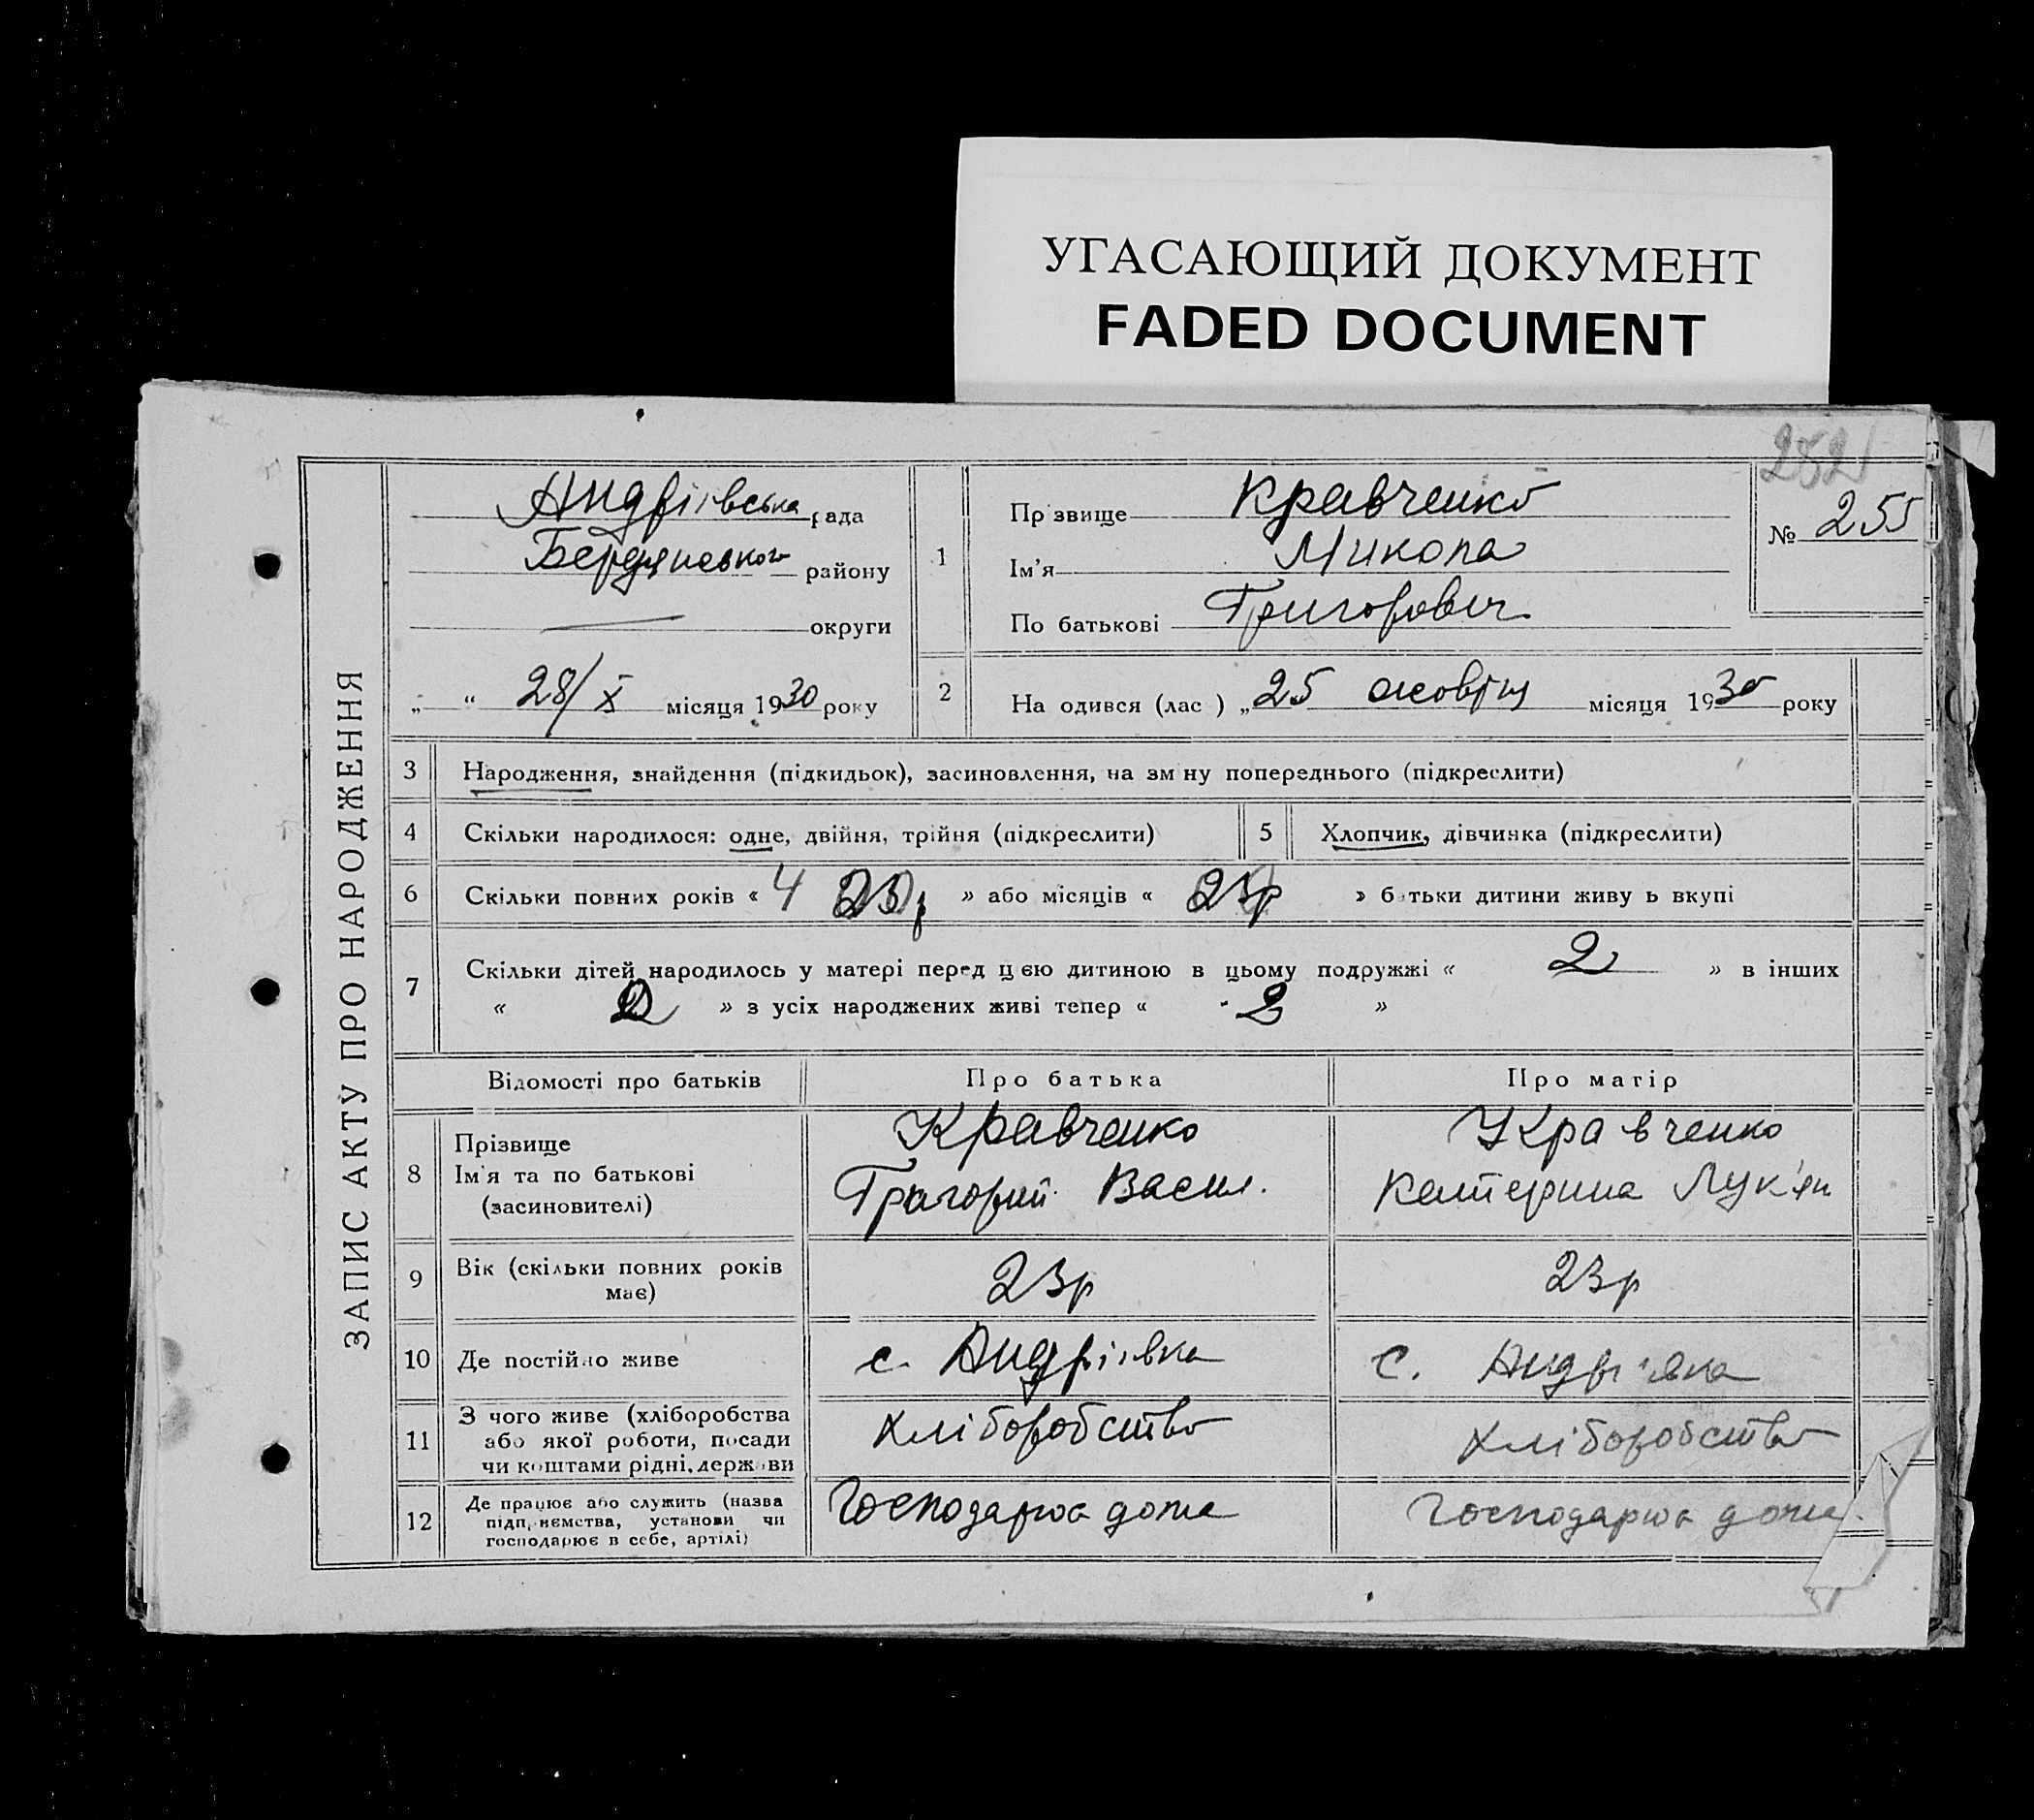 УГАСАЮЩИЙ ДОКУМЕНТ
FADED DOCUMENT
252
ЗАПИС АКТУ ПРО НАРОДЖЕННЯ
Андріївська рада
Бердянського району
округи
„ “ 28/X місяця 1930 року
1
Прізвище Кравченко
Ім'я Микола
По батькові Григорович
№ 255
2
На одився (лас ) „25 жовтня місяця 1930 року
3 Народження, знайдення (підкидьок), засиновлення, на зм ну попереднього (підкреслити)
4 Скільки народилося: одне, двійня, трійня (підкреслити)
5 Хлопчик, дівчинка (підкреслити)
6 Скільки повних років « 4 23р » або місяців « 23р » батьки дитини живу ь вкупі
7 Скільки дітей народилось у матері перед цією дитиною в цьому подружжі « 2 » в інших
« » з усіх народжених живі тепер « 2 »
Відомості про батьків Про батька Про матір
8 Прізвище
Ім'я та по батькові
(засиновителі)
Кравченко
Григорий Васил.
Кравченко
Катерина Лук'ян
9 Вік (скільки повних років
має)
23р
23р
10 Де постійно живе
с. Андріівка
с. Андріівка
11 З чого живе (хліборобства
або якої роботи, посади
чи коштами рідні, держави
хліборобство
хліборобство
12 Де працює або служить (назва
підприємства, установи чи
господарює в себе, артілі)
Господарює дома
Господарює дома.